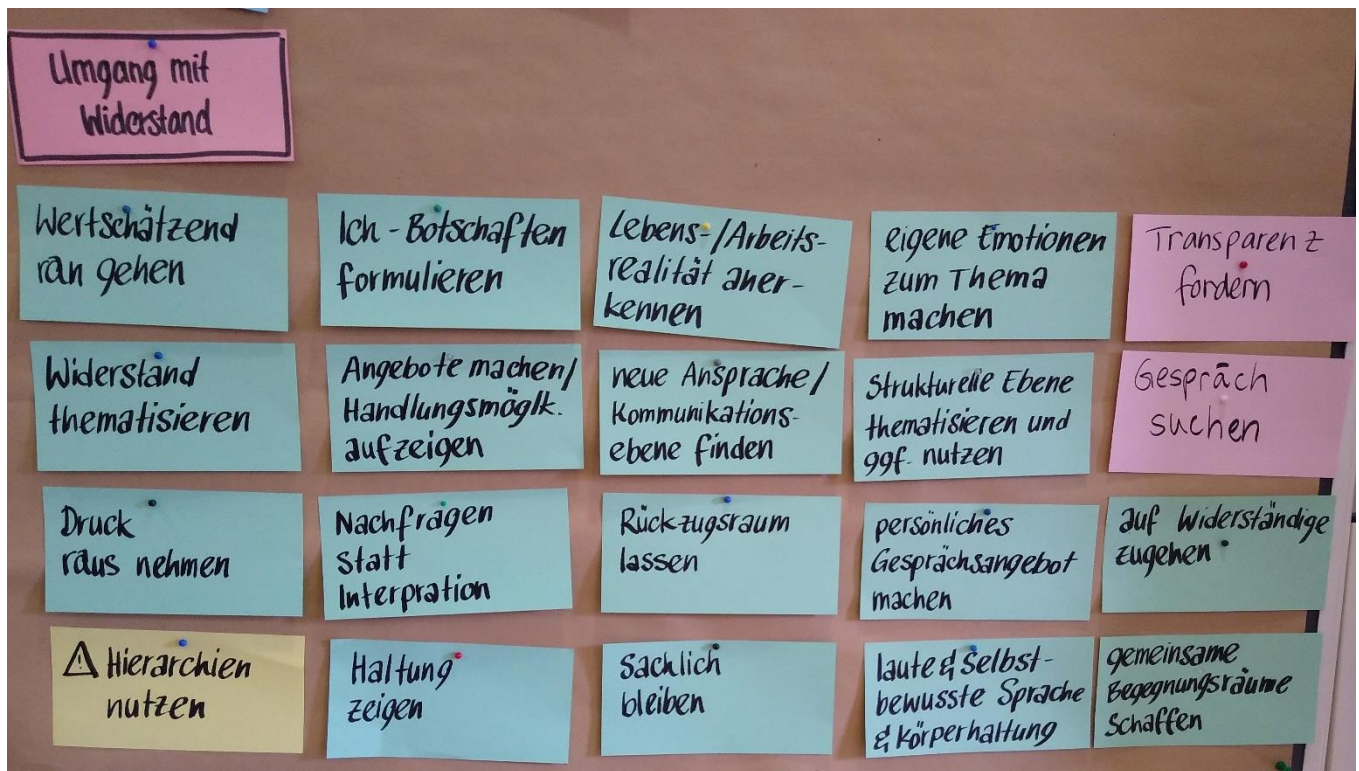 Umgang mit
Widerstand
Wertschätzend
ran gehen
Ich-Botschaften
formulieren
Lebens-/Arbeits-
realität aner-
kennen
eigene Emotionen
zum Thema
machen
Transparenz
fordern
Widerstand
thematisieren
Angebote machen/
Handlungsmöglk.
aufzeigen
neue Ansprache/
Kommunikations-
ebene finden
Strukturelle Ebene
thematisieren und
ggf. nutzen
Gespräch
suchen
Druck
raus nehmen
Nachfragen
statt
Interpration
Rückzugsraum
lassen
persönliches
Gesprächsangebot
machen
auf Widerständige
zugehen
⚠ Hierarchien
nutzen
Haltung
zeigen
Sachlich
bleiben
laute & Selbst-
bewusste Sprache
& Körperhaltung
gemeinsame
Begegnungsräume
schaffen